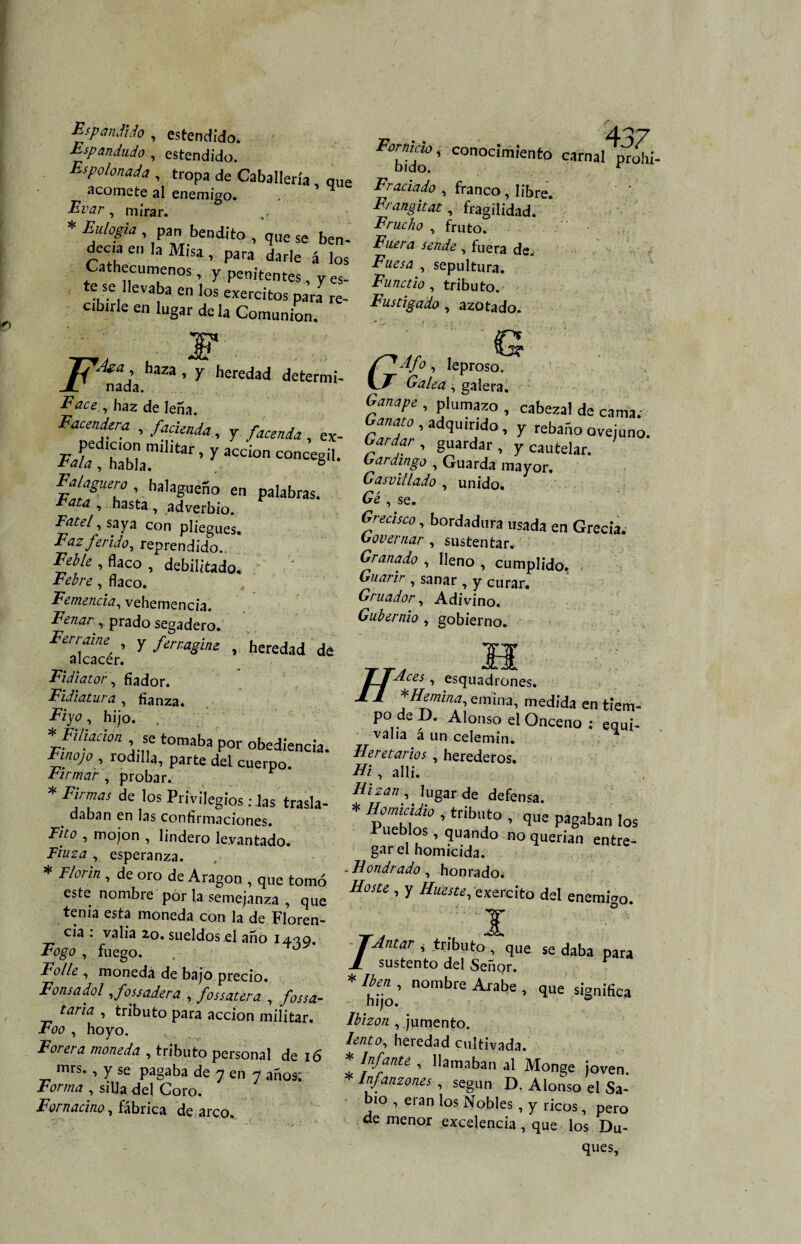 437
Espandido , estendido.
Espandudo , estendido.
Espolonada , tropa de Caballería , que
acomete al enemigo.
Evar , mirar.
* Eulogia , pan bendito , que se ben-
decia en la Misa , para darle á los
Cathecumenos , y penitentes , y es-
te se llevaba en los exercitos para re-
cibirle en lugar de la Comunion.
F
FAza , haza , y heredad determi-
nada.
Face , haz de leña.
Facendera , facienda , y facenda , ex-
pedicion militar , y accion concegil.
Fala , habla.
Falaguero , halagueño en palabras.
Fata , hasta , adverbio.
Fatel , saya con pliegues.
Faz ferido, reprendido.
Feble , flaco , debilitado.
Febre , flaco.
Femencia, vehemencia.
Fenar , prado segadero.
Ferraine , y ferragine , heredad de
alcacér.
Fidiator , fiador.
Fidiatura , fianza.
Fiyo , hijo.
* Filiacion , se tomaba por obediencia.
Finojo , rodilla, parte del cuerpo.
Firmar , probar.
* Firmas de los Privilegios : las trasla-
daban en las confirmaciones.
Fito , mojon , lindero levantado.
Fiuza , esperanza.
* Florin , de oro de Aragon , que tomó
este nombre por la semejanza , que
tenia esta moneda con la de Floren-
cia : valia 20. sueldos el año 1439.
Fogo , fuego.
Folle , moneda de bajo precio.
Fonsadol ,fossadera , fossatera , fossa-
taria , tributo para accion militar.
Foo , hoyo.
Forera moneda , tributo personal de 16
mrs. , y se pagaba de 7 en 7 años.
Forma , silla del Coro.
Fornacino , fábrica de arco.
Fornicio , conocimiento carnal prohi-
bido.
Fraciado , franco , libre.
Frangitat , fragilidad.
Frucho , fruto.
Fuera sende , fuera de.
Fuesa , sepultura.
Functio , tributo.
Fustigado , azotado.
G
GAfo , leproso.
Galea , galera.
Ganape , plumazo , cabezal de cama.
Ganato , adquirido , y rebaño ovejuno.
Gardar , guardar , y cautelar.
Gardingo , Guarda mayor.
Gasvillado , unido.
Gé , se.
Grecisco , bordadura usada en Grecia.
Governar , sustentar.
Granado , lleno , cumplido.
Guarir , sanar , y curar.
Gruador , Adivino.
Gubernio , gobierno.
H
HAces , esquadrones.
*Hemina, emina, medida en tiem-
po de D. Alonso el Onceno : equi-
valia á un celemin.
Heretarios , herederos.
Hi , alli.
Hizan , lugar de defensa.
* Homicidio , tributo , que pagaban los
Pueblos , quando no querian entre-
gar el homicida.
Hondrado , honrado.
Hoste , y Hueste, exercito del enemigo.
I
IAntar , tributo , que se daba para
sustento del Señor.
* Iben , nombre Arabe , que significa
hijo.
Ibizon , jumento.
Iento, heredad cultivada.
* Infante , llamaban al Monge joven.
* Infanzones , segun D. Alonso el Sa-
bio , eran los Nobles , y ricos , pero
de menor excelencia , que los Du-
ques,